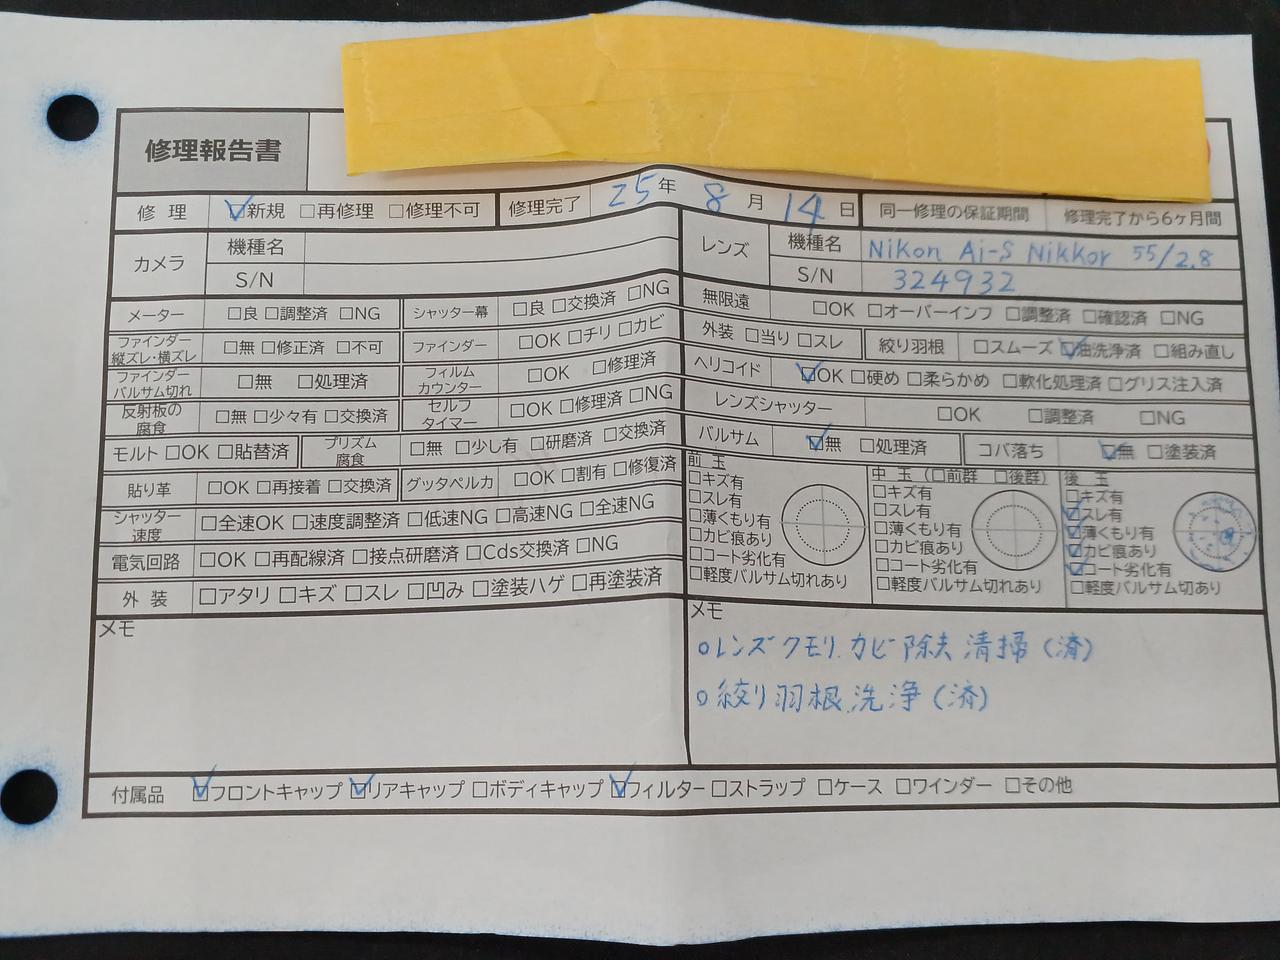 修理報告書
修理 ☑新規 □再修理 □修理不可 修理完了 25年 8月 14日 同一修理の保証期間 修理完了から6ヶ月間
カメラ 機種名
S/N
レンズ 機種名 Nikon Ai-S Nikkor 55/2.8
S/N 324932
メーター □良 □調整済 □NG シャッター幕 □良 □交換済 □NG
ファインダー縦ズレ・横ズレ □無 □修正済 □不可 ファインダー □OK □チリ □カビ
ファインダーバルサム切れ □無 □処理済 フィルムカウンター □OK □修理済
反射板の腐食 □無 □少々有 □交換済 セルフタイマー □OK □修理済 □NG
モルト □OK □貼替済 プリズム腐食 □無 □少し有 □研磨済 □交換済
貼り革 □OK □再接着 □交換済 グッタペルカ □OK □割有 □修復済
シャッター速度 □全速OK □速度調整済 □低速NG □高速NG □全速NG
電気回路 □OK □再配線済 □接点研磨済 □Cds交換済 □NG
外装 □アタリ □キズ □スレ □凹み □塗装ハゲ □再塗装済
メモ
無限遠 □OK □オーバーインフ □調整済 □確認済 □NG
外装 □当り □スレ 絞り羽根 □スムーズ ☑油洗浄済 □組み直し
ヘリコイド ☑OK □硬め □柔らかめ □軟化処理済 □グリス注入済
レンズシャッター □OK □調整済 □NG
バルサム ☑無 □処理済 コバ落ち ☑無 □塗装済
前玉
□キズ有
□スレ有
□薄くもり有
□カビ痕あり
□コート劣化有
□軽度バルサム切れあり
中玉 (□前群 □後群)
□キズ有
□スレ有
□薄くもり有
□カビ痕あり
□コート劣化有
□軽度バルサム切れあり
後玉
□キズ有
☑スレ有
☑薄くもり有
☑カビ痕あり
☑コート劣化有
□軽度バルサム切あり
メモ
○レンズクモリ.カビ除去清掃(済)
○絞り羽根洗浄(済)
付属品 ☑フロントキャップ ☑リアキャップ □ボディキャップ ☑フィルター □ストラップ □ケース □ワインダー □その他